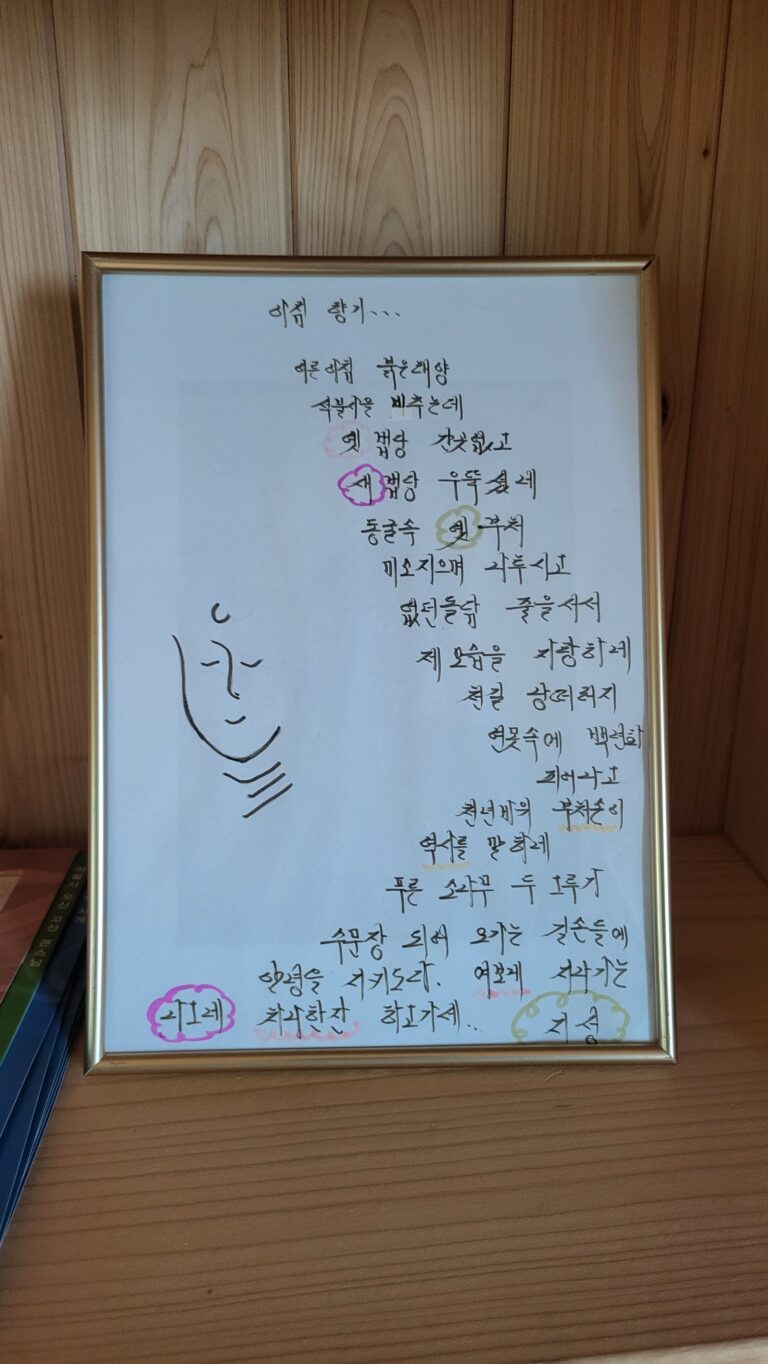 아침 향기...
이른아침 붉은태양
석불사을 비추는데
옛 법당 간곳없고
새법당 우뚝섰네
동굴속 옛 부처
미소지으며 나투시고
없던돌탑 줄을서서
제모습을 자랑하네
천길 낭떠러지
연못속에 백련화
피어나고
천년바위 부처손이
역사를 말하네
푸른 소나무 두 그루가
수문장 되어 오가는 길손들에
안녕을 지키도다. 여보게 지나가는
나그네 차나한잔 하고가세..
지성